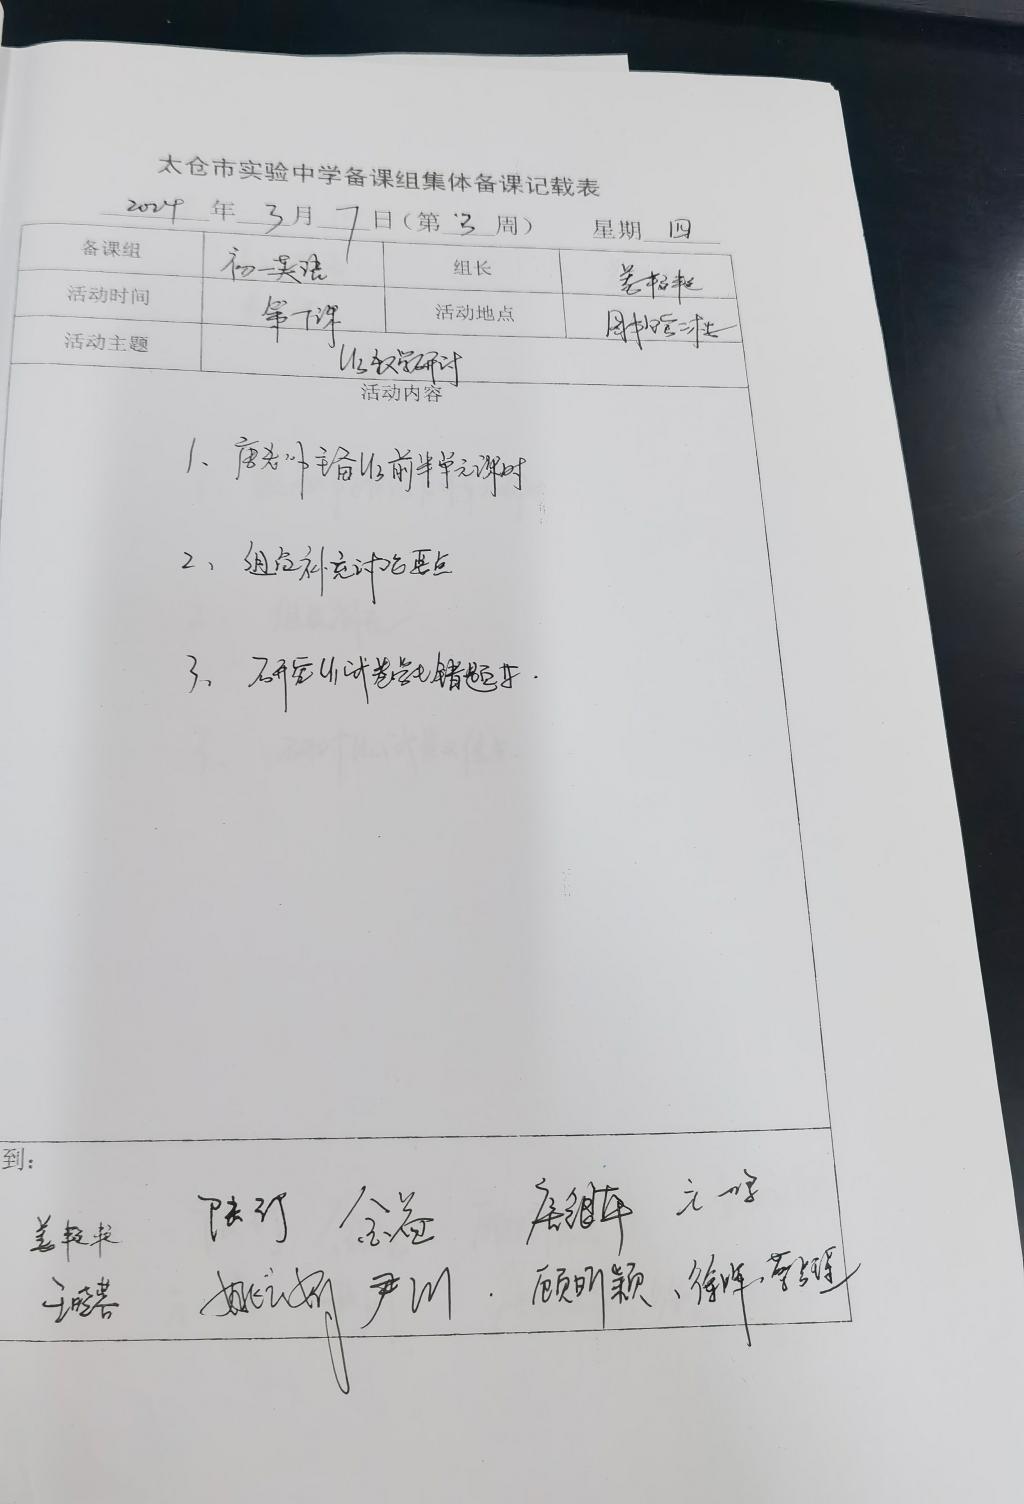 太仓市实验中学备课组集体备课记载表
2024 年 3 月 7 日（第 3 周） 星期 四
备课组 初一英语 组长
活动时间 第 课 活动地点 图书馆二楼
活动主题 U3教学研讨
活动内容
1、唐老师主备U3前半单元课时
2、组员补充讨论要点
3、研究U1试卷 错题
到：
陆 金益 唐
尹川 顾明颖、徐晔、